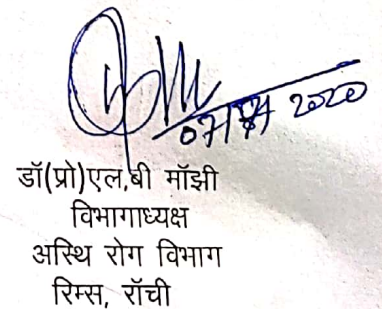 2020
डॉ(प्रो)एल,बी मॉझी
विभागाध्यक्ष
अस्थि रोग विभाग
रिम्स, रॉंची